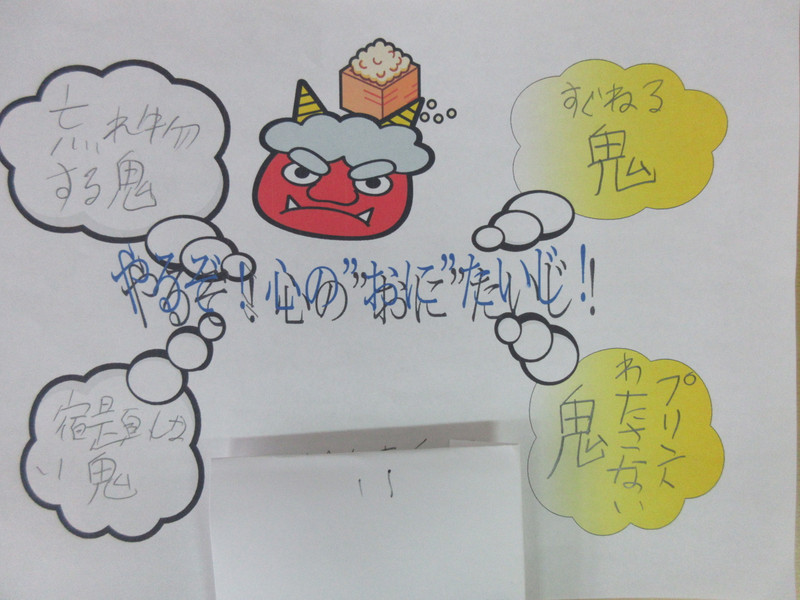 忘れ物
する鬼
すぐねる
鬼
やるぞ！心の”おに”たいじ！！
宿題しな
い鬼
プリント
わたさない
鬼